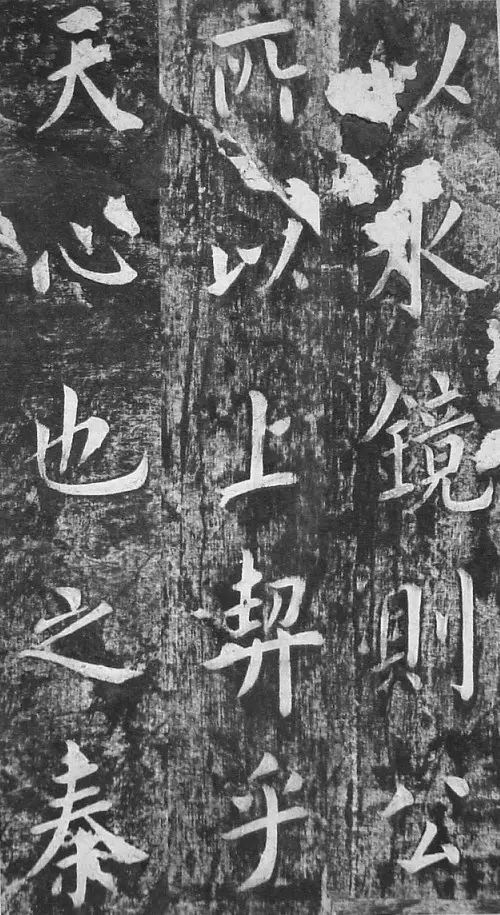 以水鏡則公
所以上契乎
天心也之秦